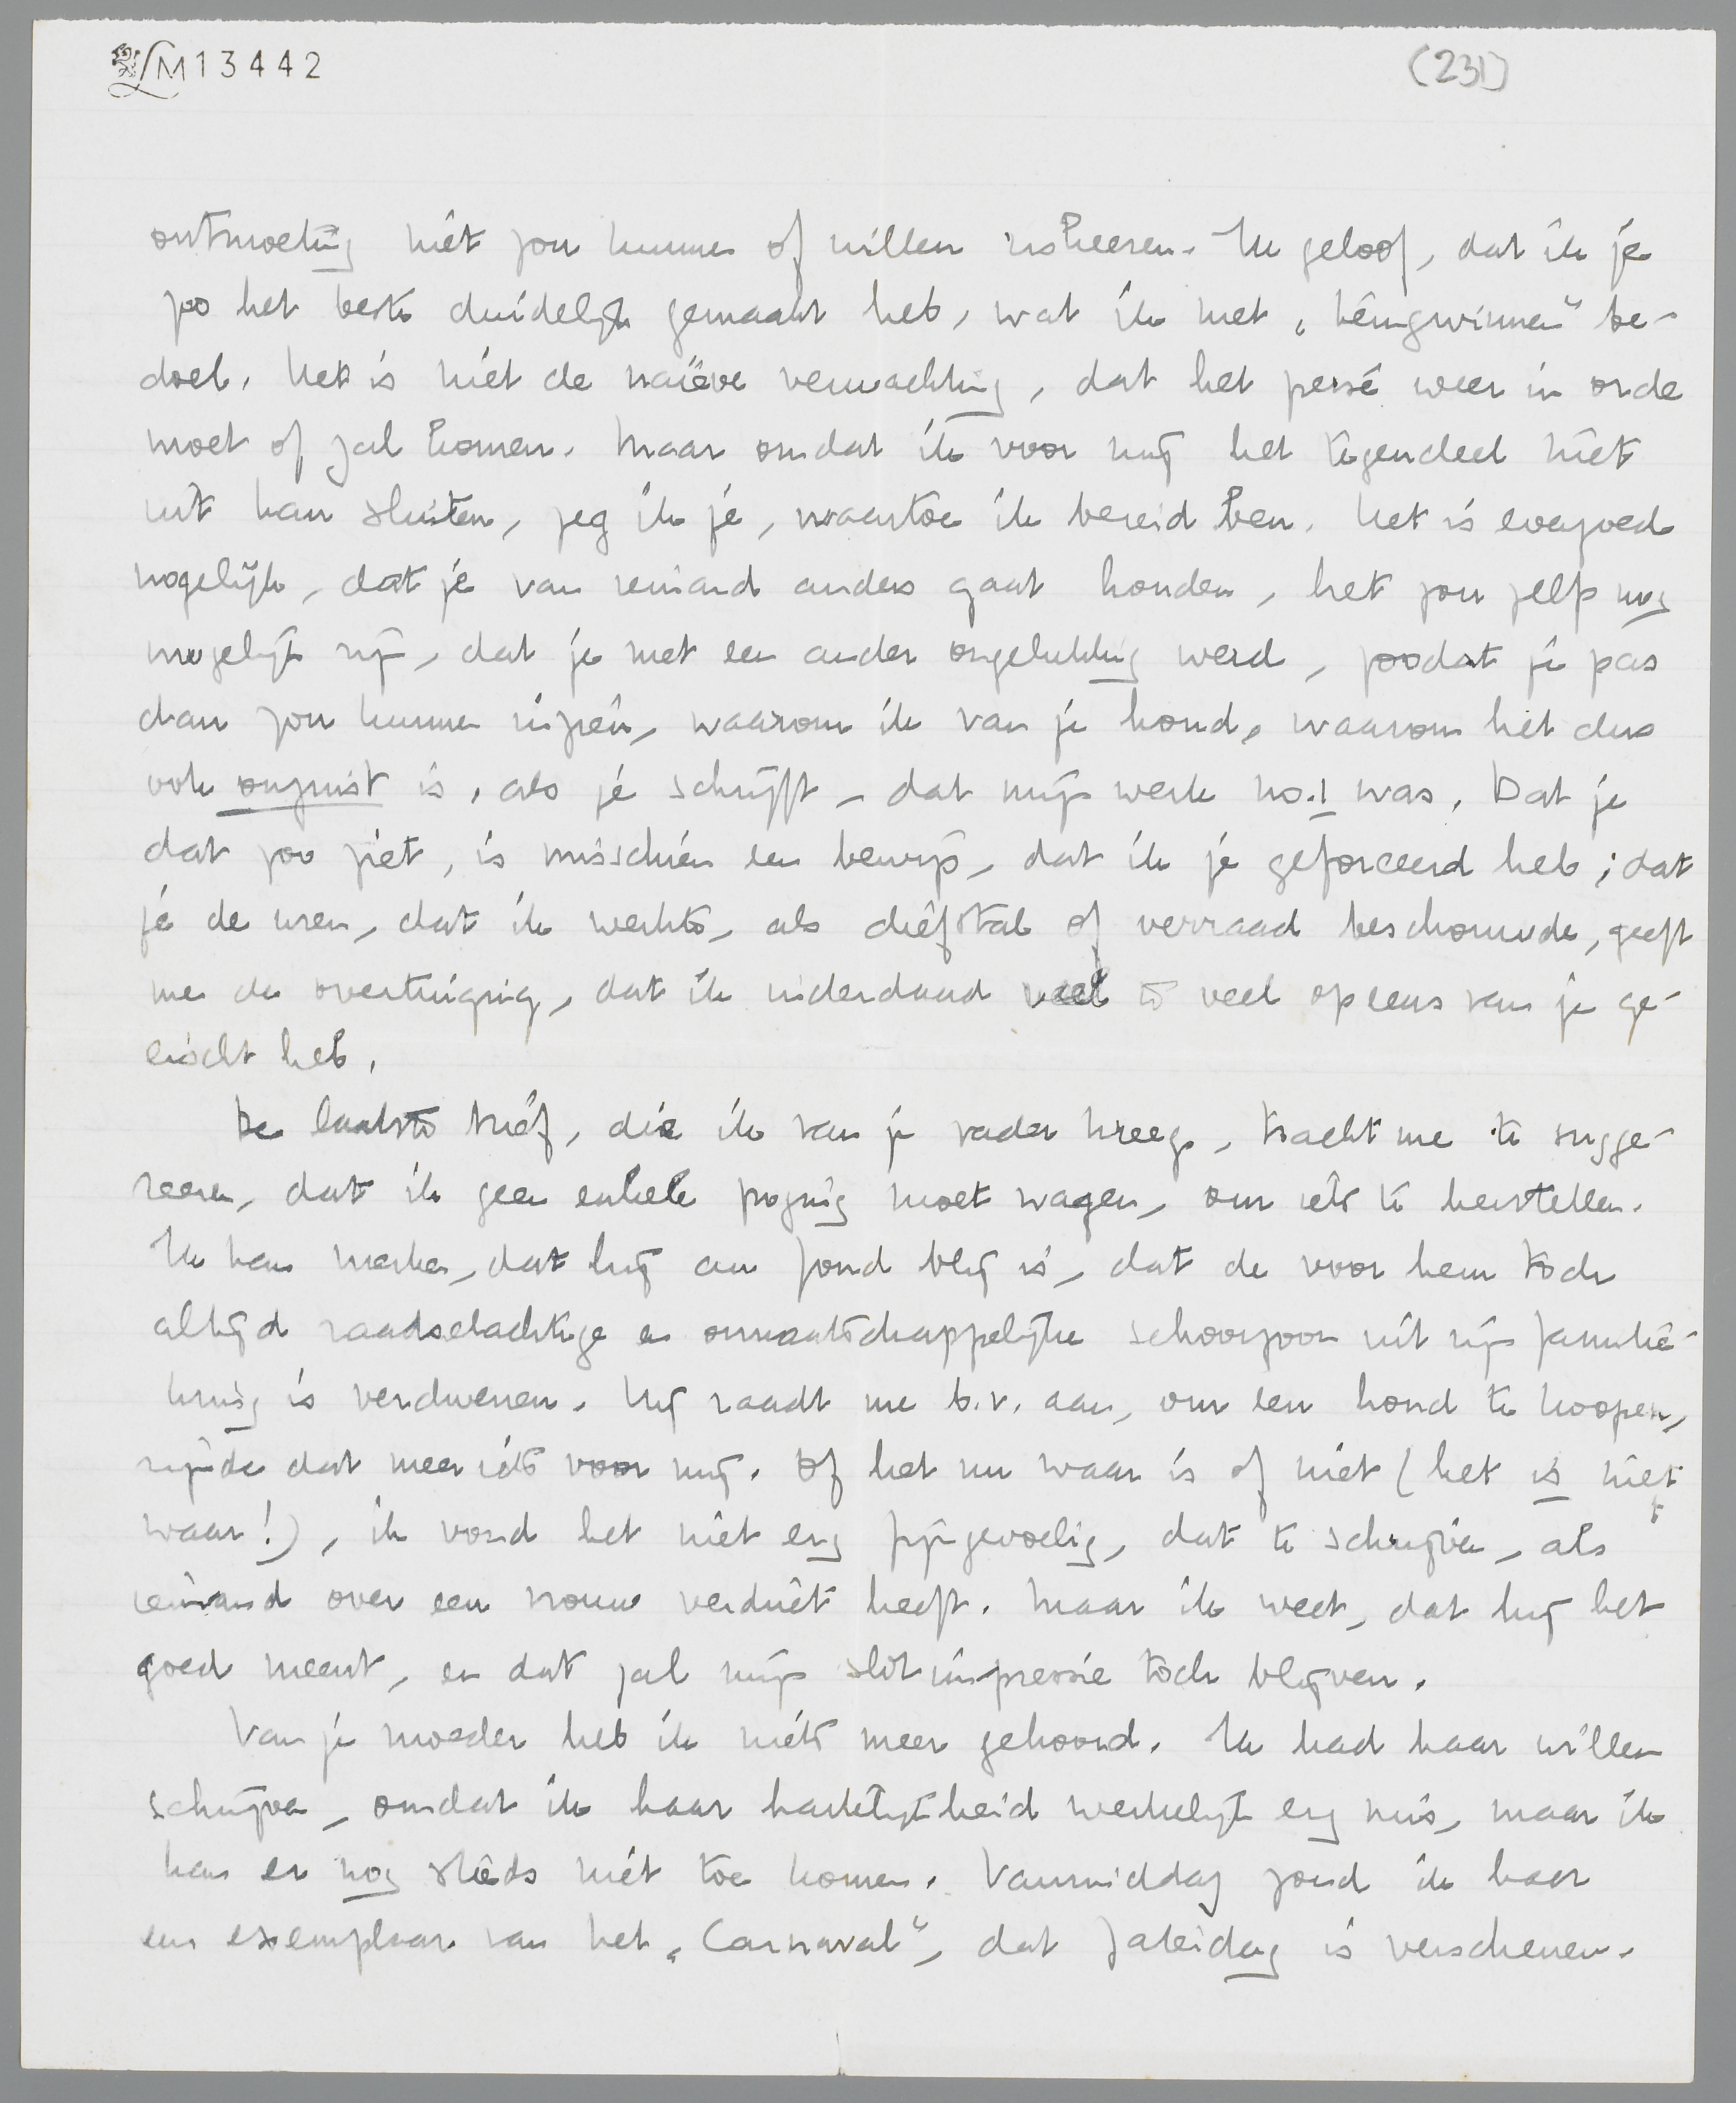 LM13442
(231)
ontmoeting niet zou kunnen of willen riskeeren. Ik geloof, dat ik je
zoo het beste duidelijk gemaakt heb, wat ik met „terugwinnen" be-
doel. Het is niet de naïeve verwachting, dat het persé weer in orde
moet of zal komen. Maar omdat ik voor mij het tegendeel niet
uit kan sluiten, zeg ik je, waartoe ik bereid ben. Het is evengoed
mogelijk, dat je van iemand anders gaat houden, het zou zelfs nog
mogelijk zijn, dat je met een ander ongelukkig werd, zoodat je pas
dan zou kunnen inzien, waarom ik van je houd, waarom het dus
ook onjuist is, als je schrijft, dat mijn werk no.1 was. Dat je
dat zoo ziet, is misschien een bewijs, dat ik je geforceerd heb; dat
je de uren, dat ik werkte, als diefstal of verraad beschouwde, geeft
me de overtuiging, dat ik inderdaad veel te veel opeens van je ge-
eischt heb.
De laatste brief, die ik van je vader kreeg, tracht me te sugge-
reeren, dat ik geen enkele poging moet wagen, om iets te herstellen.
Ik kan merken, dat hij au fond blij is, dat de voor hem toch
altijd raadselachtige en onmaatschappelijke schoonzoon uit zijn familie-
kring is verdwenen. Hij raadt me b.v. aan, om een hond te koopen,
zijnde dat meer iets voor mij. Of het nu waar is of niet (het is niet
waar!), ik vond het niet erg fijngevoelig, dat te schrijven, als
iemand over een vrouw verdriet heeft. Maar ik weet, dat hij het
goed meent, en dat zal mijn slotimpressie toch blijven.
Van je moeder heb ik niets meer gehoord. Ik had haar willen
schrijven, omdat ik haar hartelijkheid werkelijk erg mis, maar ik
kan er nog steeds niet toe komen. Vanmiddag zond ik haar
een exemplaar van het „Carnaval", dat Zaterdag is verschenen.